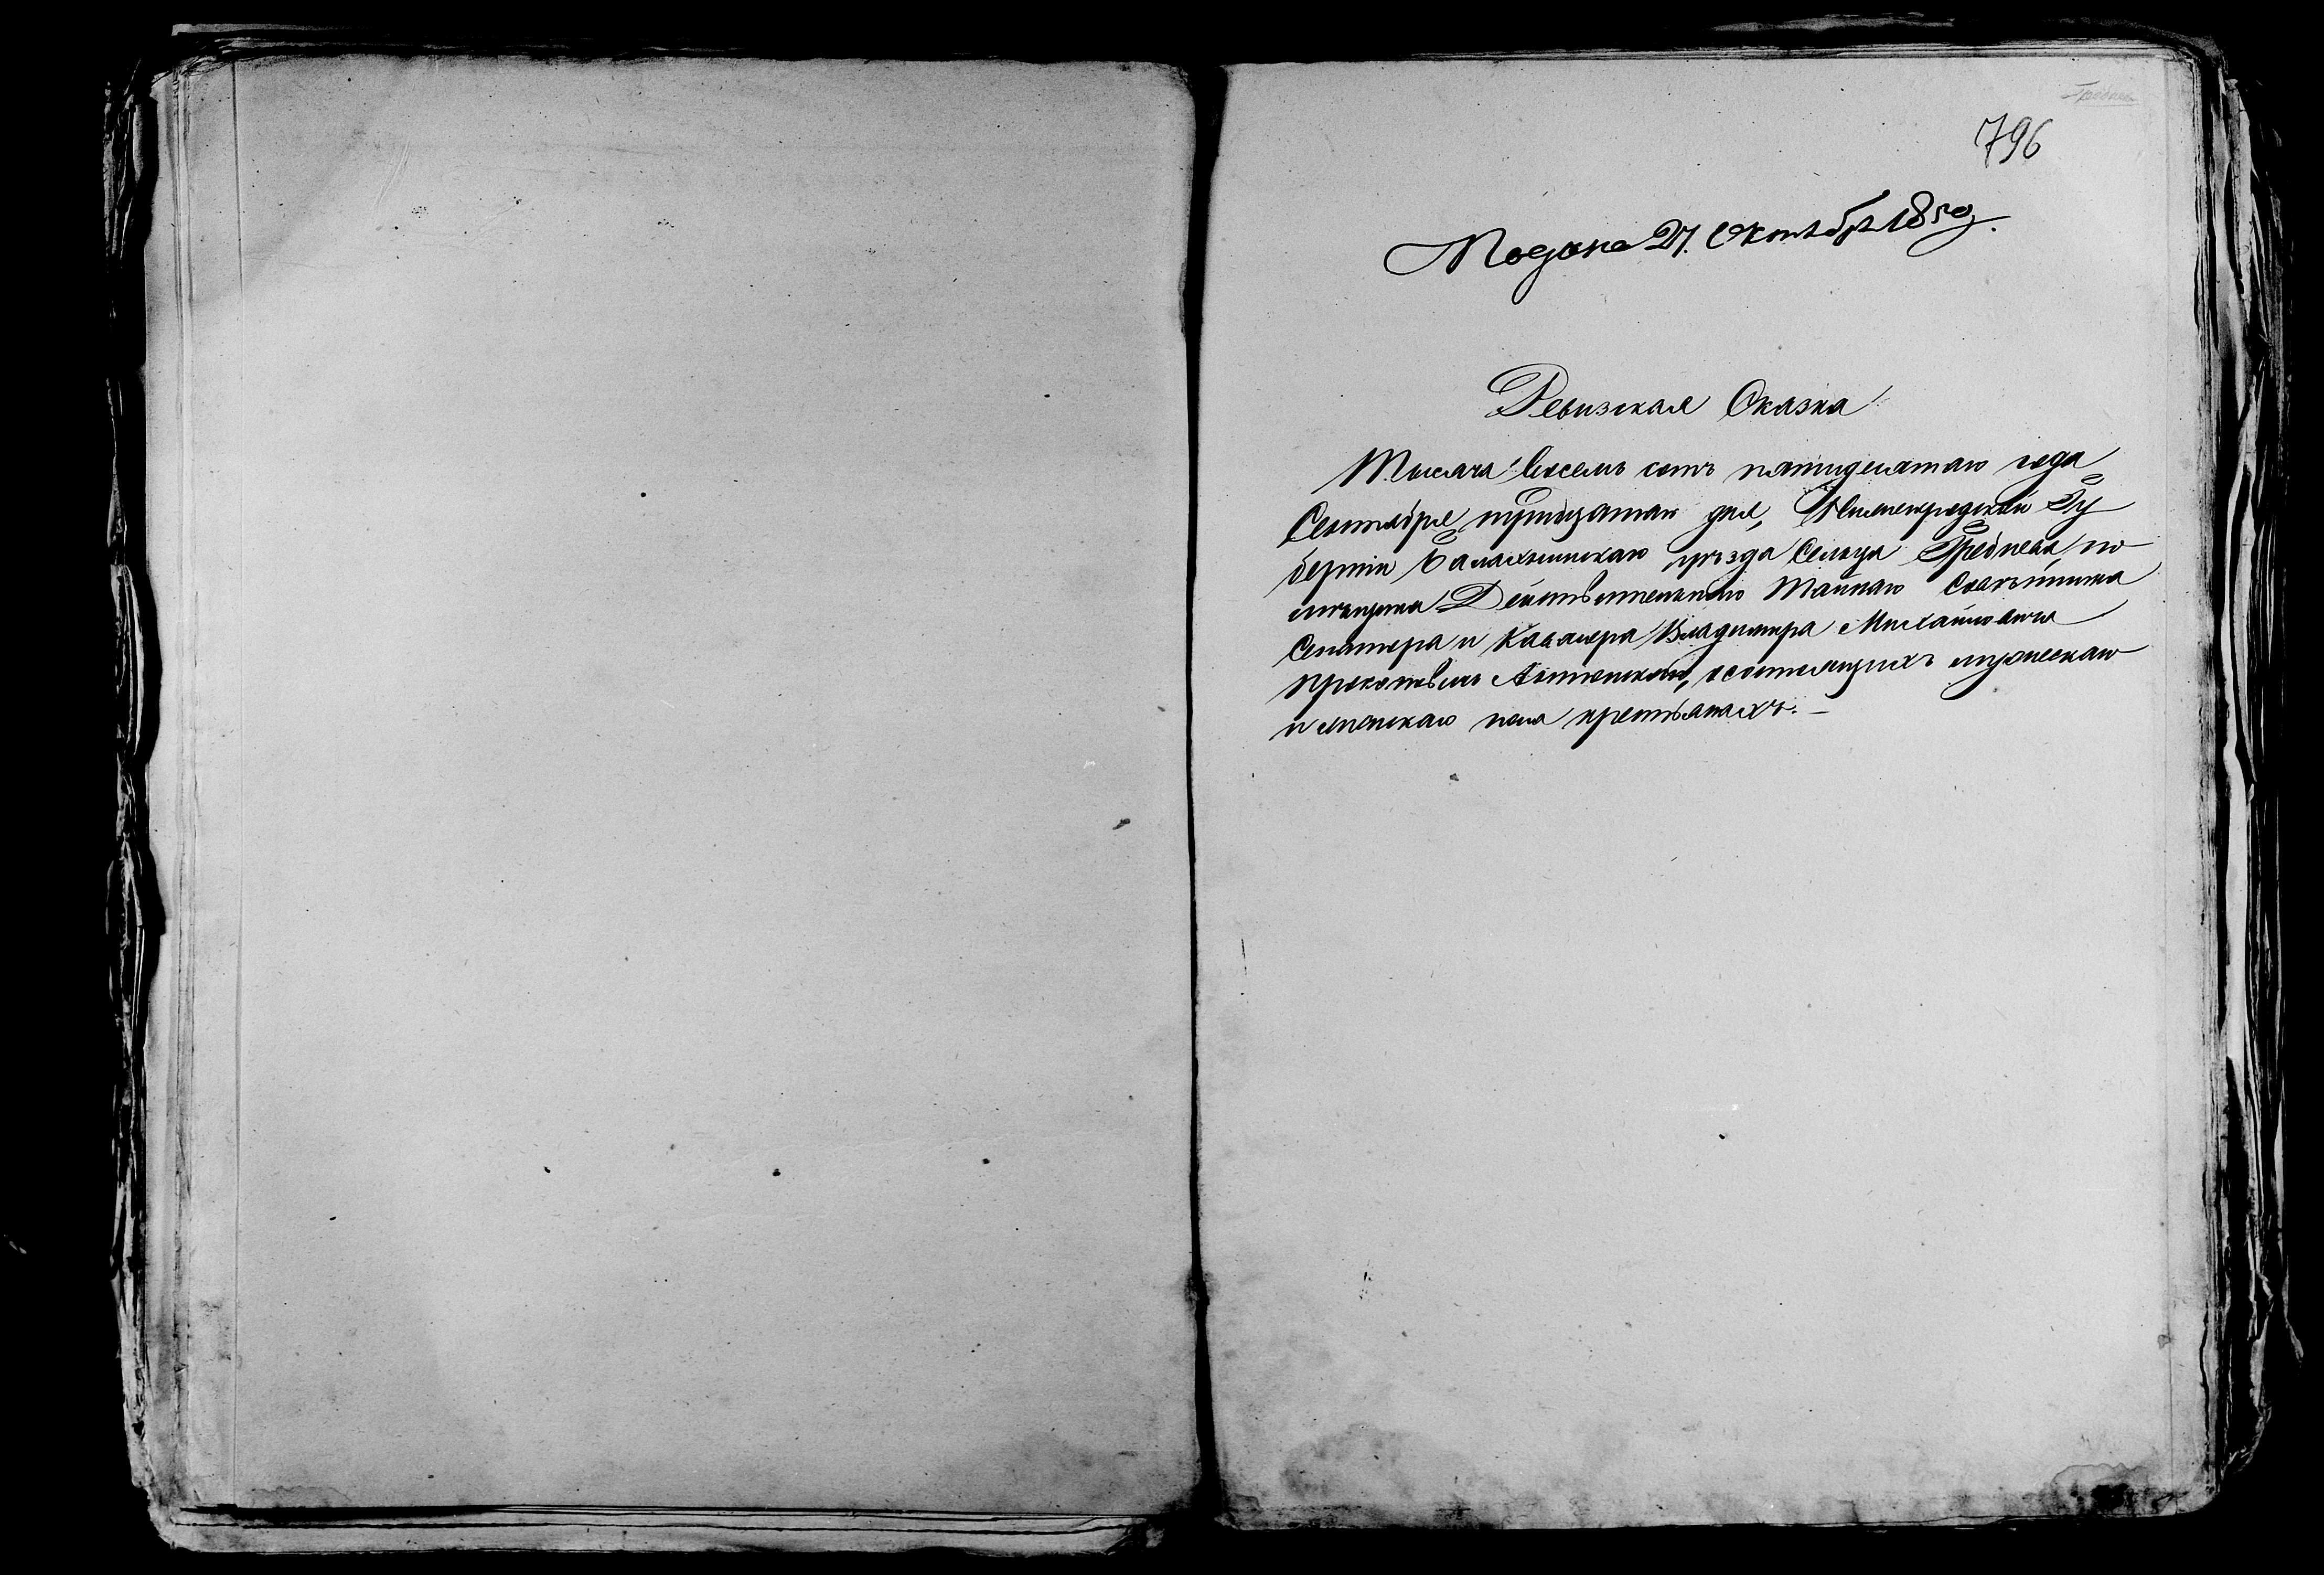 Гребнев
796
Подана 27. Октября 1850 г.
Ревизская Сказка
Тысяча восемь сотъ пятидесятаго года
Сентября тритцатаго дня, Нижегородской Гу
берніи Балахнинскаго уѣзда Сельца Гребнева, по
мѣщика Дѣйствительнаго Тайнаго Совѣтника
Сенатора и Кавалера Владимира Михайловича
Прокоповичь Антонскаго, о состоящихъ мужескаго
и женскаго пола крестьянахъ. —